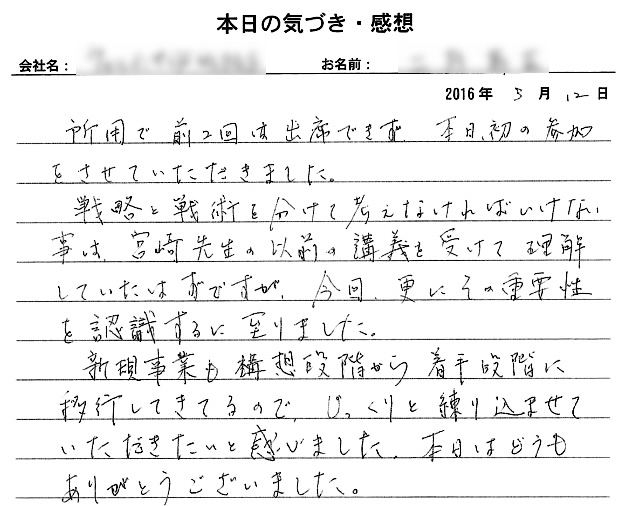 本日の気づき・感想
会社名:
お名前:
2016年 5月 12日
所用で前2回は出席できず、本日、初の参加
をさせていただきました。
戦略と戦術を分けて考えなければいけない
事は、宮崎先生の以前の講義を受けて理解
していたはずですが、今回、更にその重要性
を認識するに至りました。
新規事業も構想段階から着手段階に
移行してきてるので、じっくりと練り込ませて
いただきたいと感じました。本日はどうも
ありがとうございました。